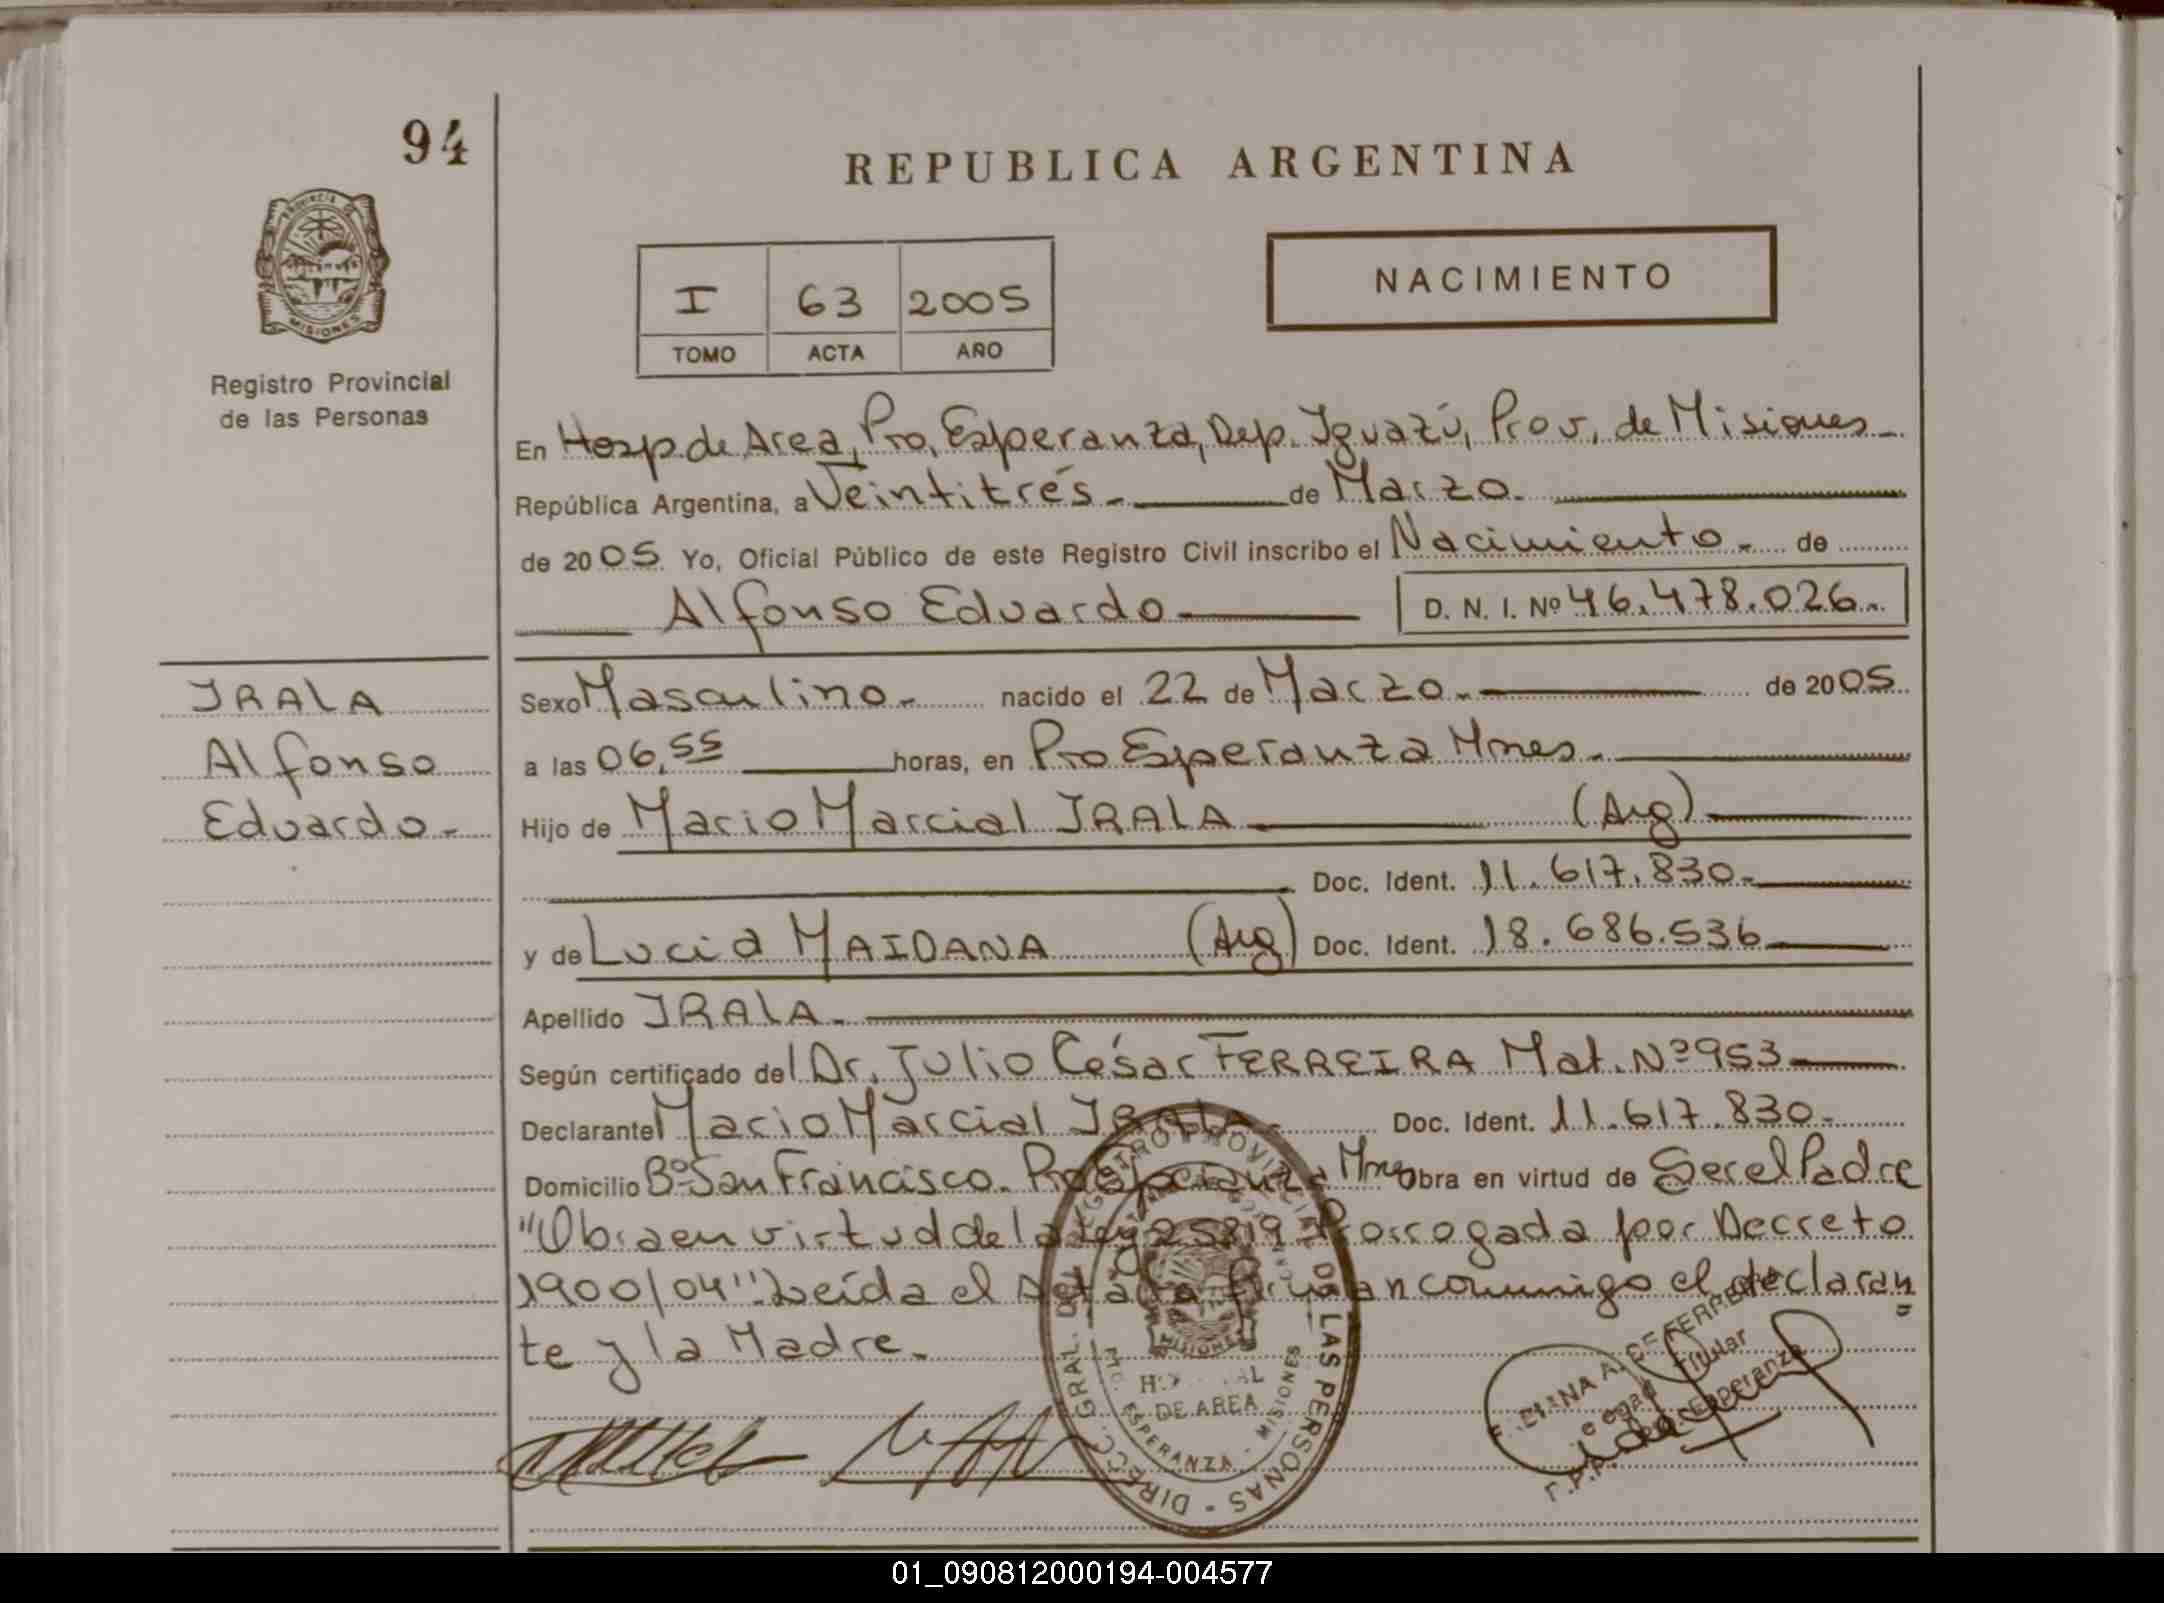 94
REPUBLICA ARGENTINA
PROVINCIA DE
MISIONES
Registro Provincial
de las Personas
I 63 2005
TOMO ACTA AÑO
NACIMIENTO
En Hosp. de Area, Pto, Esperanza, Dep. Iguazú, Prov, de Misiones
República Argentina, a Veintitrés de Marzo.
de 2005. Yo, Oficial Público de este Registro Civil inscribo el Nacimiento. de
Alfonso Eduardo D. N. I. Nº 46.478.026.
IRALA
Alfonso
Eduardo.
Sexo Masculino. nacido el 22 de Marzo. de 2005
a las 06,55 horas, en Pto Esperanza Mnes.
Hijo de Mario Marcial IRALA (Arg)
Doc. Ident. 11.617.830.
y de Lucia MAIDANA (Arg) Doc. Ident. 18.686.536
Apellido IRALA.
Según certificado del Dr. Julio César FERREIRA Mat. Nº 953
Declarante Mario Marcial IRALA. Doc. Ident. 11.617.830.
Domicilio Bº San Francisco. Pto Esperanza Mnes Obra en virtud de Ser el Padre
"Obra en virtud de la Ley 25819 Prorrogada por Decreto
1900/04". Leída el Acta la firman conmigo el declaran
te y la Madre.
DIRECC. GRAL. DEL REGISTRO PROVINCIAL DE LAS PERSONAS
MISIONES
DE AREA
ESPERANZA - MISIONES
A. DE FERREIRA
Titular
Esperanza
01_090812000194-004577